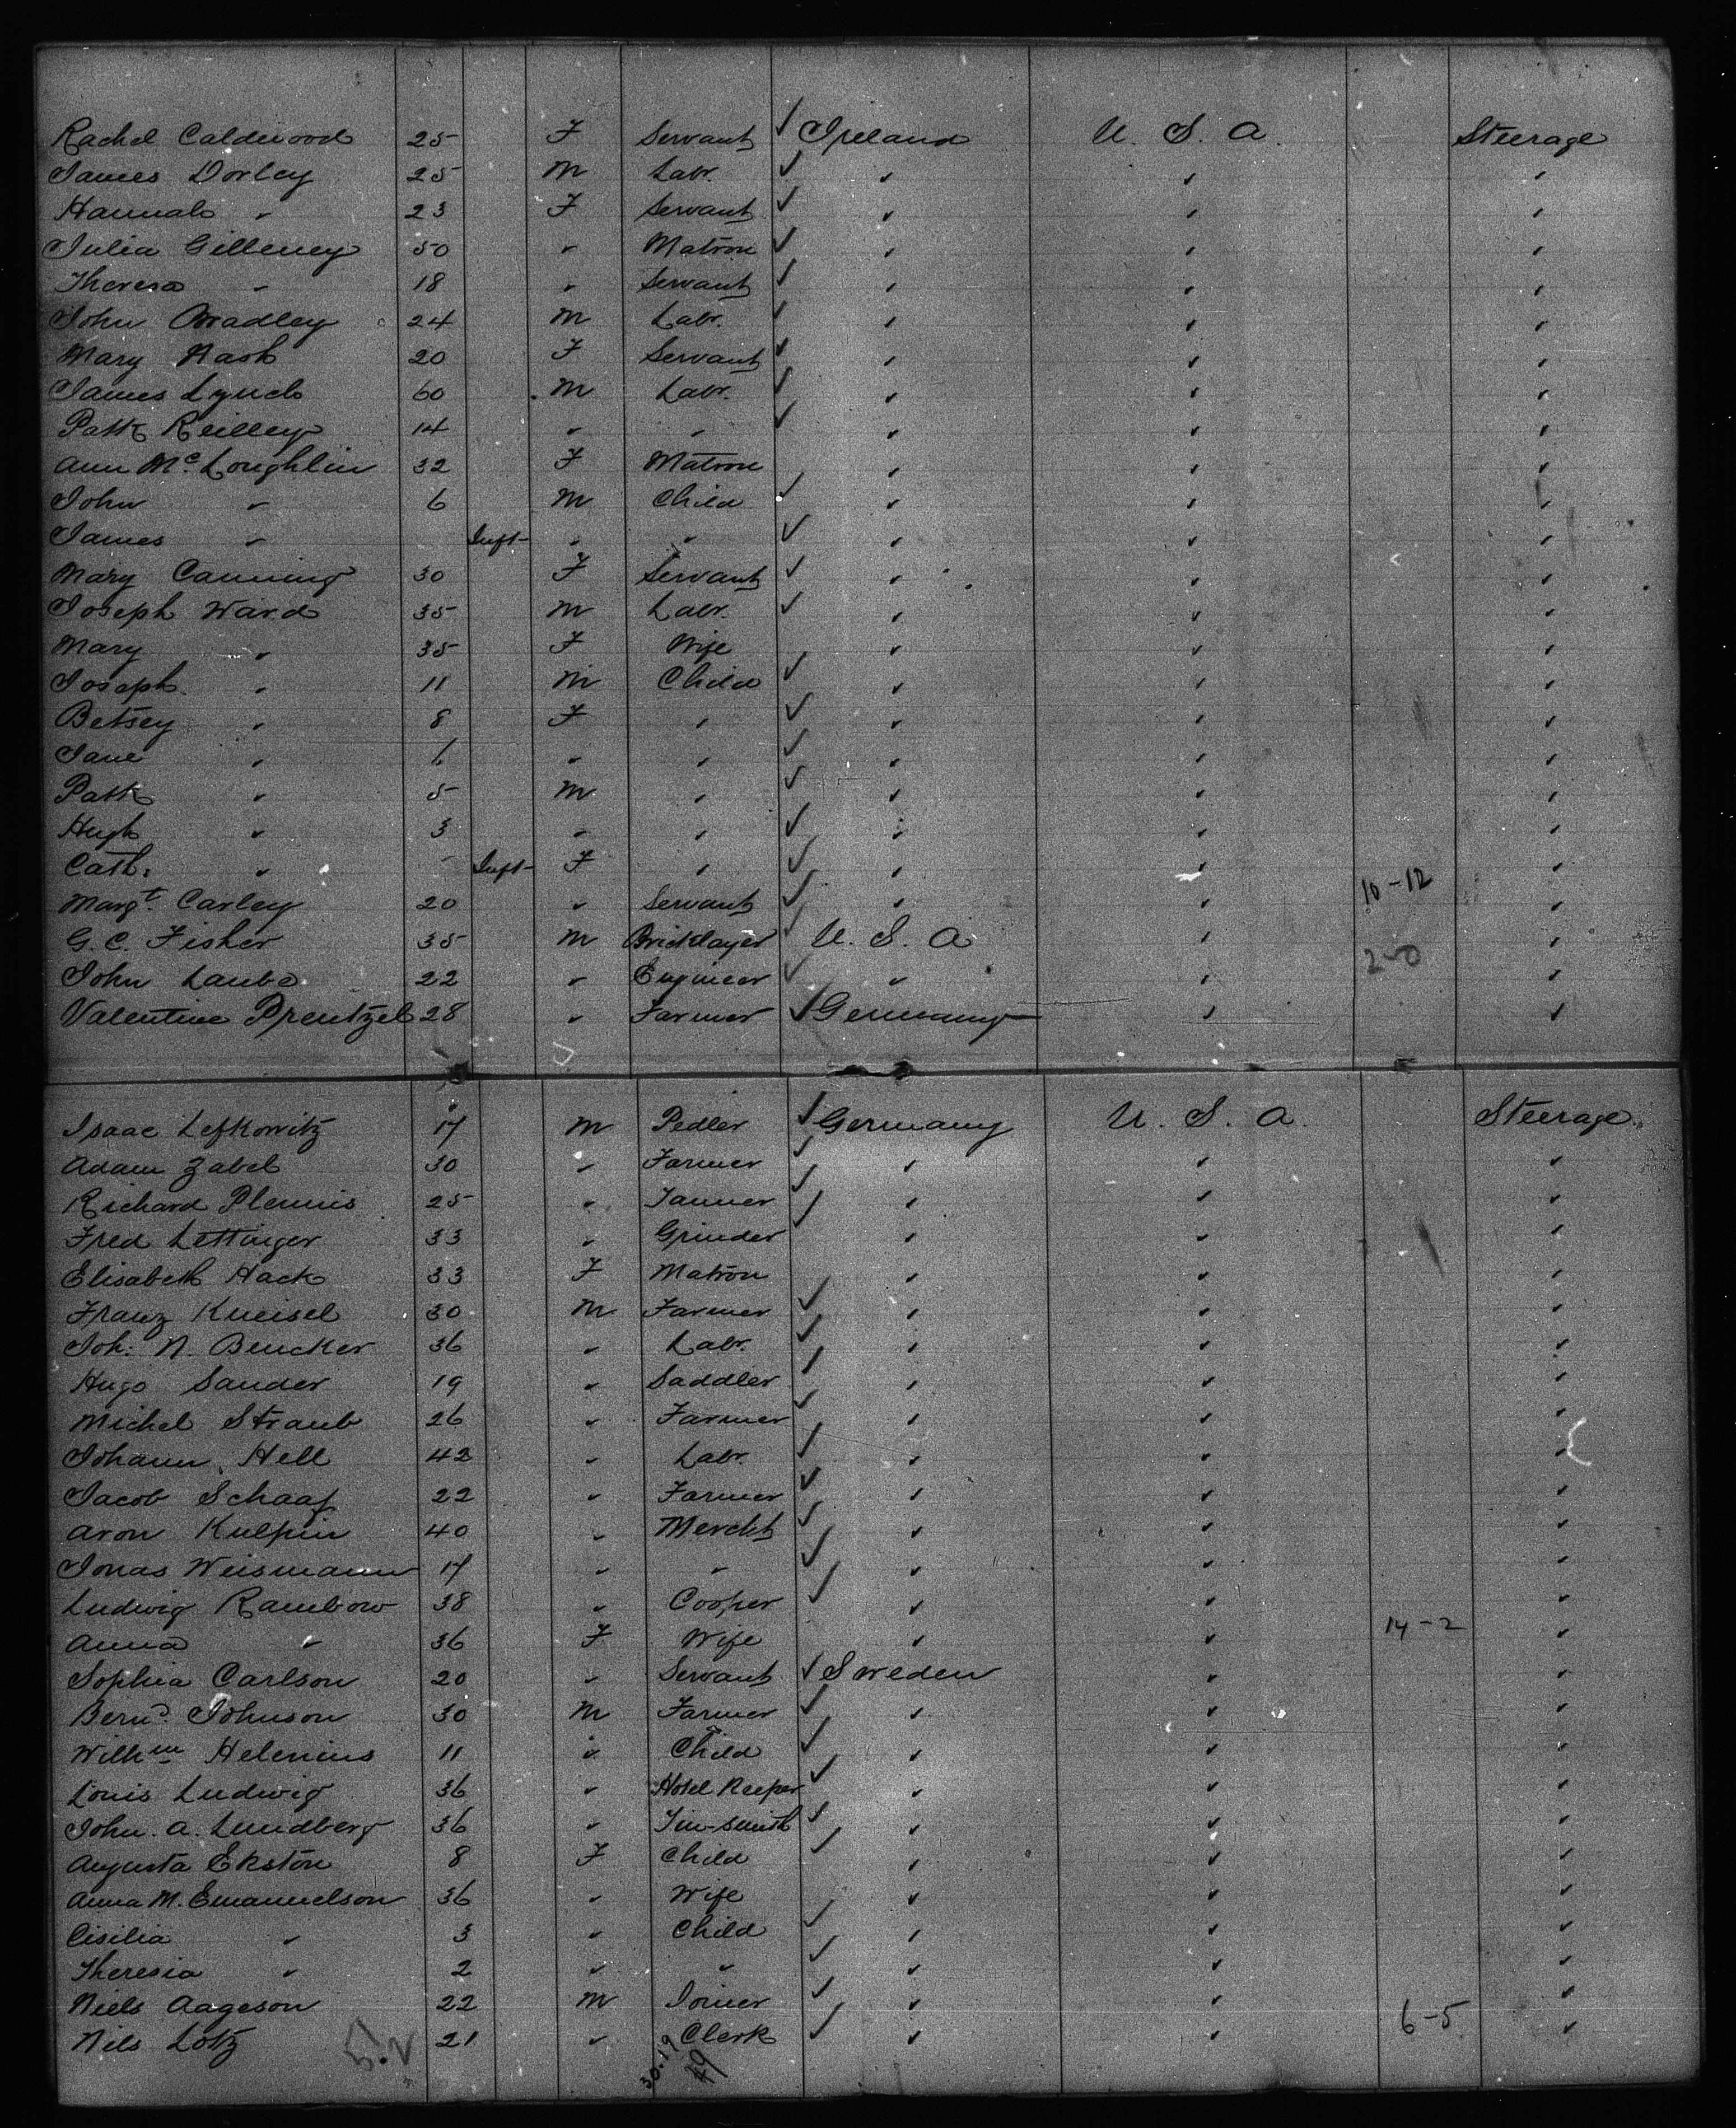 Rachel Calderwood 25 F Servant ✓ Ireland U. S. A. Steerage
James Dorley 25 M Labr. ✓ " " "
Hannah " 23 F Servant ✓ " " "
Julia Gilleney 50 " Matron ✓ " " "
Theresa " 18 " Servant ✓ " " "
John Bradley 24 M Labr. ✓ " " "
Mary Nash 20 F Servant ✓ " " "
James Lynch 60 M Labr. ✓ " " "
Patk Reilley 14 " " ✓ " " "
Ann McLoughlin 32 F Matron " " "
John " 6 M Child ✓ " " "
James " Inft " " ✓ " " "
Mary Canning 30 F Servant ✓ " " "
Joseph Ward 35 M Labr. ✓ " " "
Mary " 35 F Wife " " "
Joseph " 11 M Child ✓ " " "
Betsey " 8 F " ✓ " " "
Jane " 6 " " ✓ " " "
Patk " 5 M " ✓ " " "
Hugh " 3 " " ✓ " " "
Cath: " Inft F " ✓ " " "
Margt. Carley 20 " Servant ✓ " " 10-12 "
G. C. Fisher 35 M Bricklayer ✓ U. S. A " "
John Laube 22 " Engineer ✓ " " 2-0 "
Valentine Prentzel 28 " Farmer ✓ Germany " "
Isaac Lefkowitz 17 M Pedler ✓ Germany U. S. A. Steerage
Adam Zabel 30 " Farmer ✓ " " "
Richard Plennis 25 " Tanner ✓ " " "
Fred Lettinger 33 " Grinder ✓ " " "
Elisabeth Hack 33 F Matron " " "
Franz Kneisel 30 M Farmer ✓ " " "
Joh: N. Beucker 36 " Labr. ✓ " " "
Hugo Sander 19 " Saddler ✓ " " "
Michel Straub 26 " Farmer ✓ " " "
Johann Hell 42 " Labr. ✓ " " "
Jacob Schaaf 22 " Farmer ✓ " " "
Aron Kulpin 40 " Mercht ✓ " " "
Jonas Weismann 17 " " ✓ " " "
Ludwig Rambow 38 " Cooper ✓ " " "
Anna " 36 F Wife " " 14-2 "
Sophia Carlson 20 " Servant ✓ Sweden " "
Bernd. Johnson 30 M Farmer ✓ " " "
Wilhm Helenius 11 " Child ✓ " " "
Louis Ludwig 36 " Hotel Keeper ✓ " " "
John. A. Lundberg 36 " Tin-smith ✓ " " "
Augusta Ekston 8 F Child ✓ " " "
Anna M. Emanuelson 36 " Wife " " "
Cisilia " 3 " Child ✓ " " "
Theresia " 2 " " ✓ " " "
Niels Aageson 22 M Joiner ✓ " " "
Nils Lotz 21 " Clerk ✓ " " 6-5 "
30.19
49